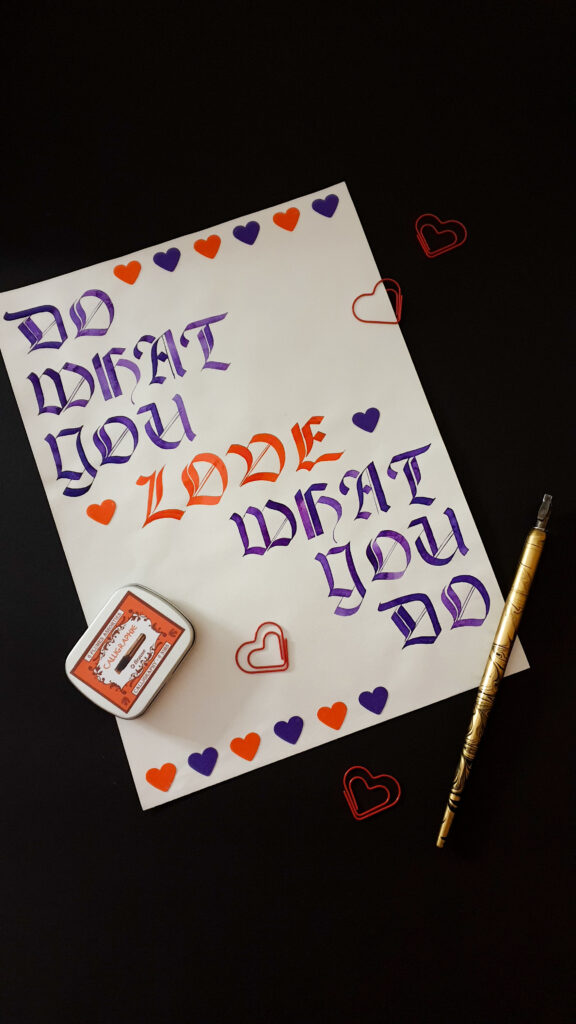 DO
WHAT
YOU
LOVE
WHAT
YOU
DO
CALLIGRAPHIE